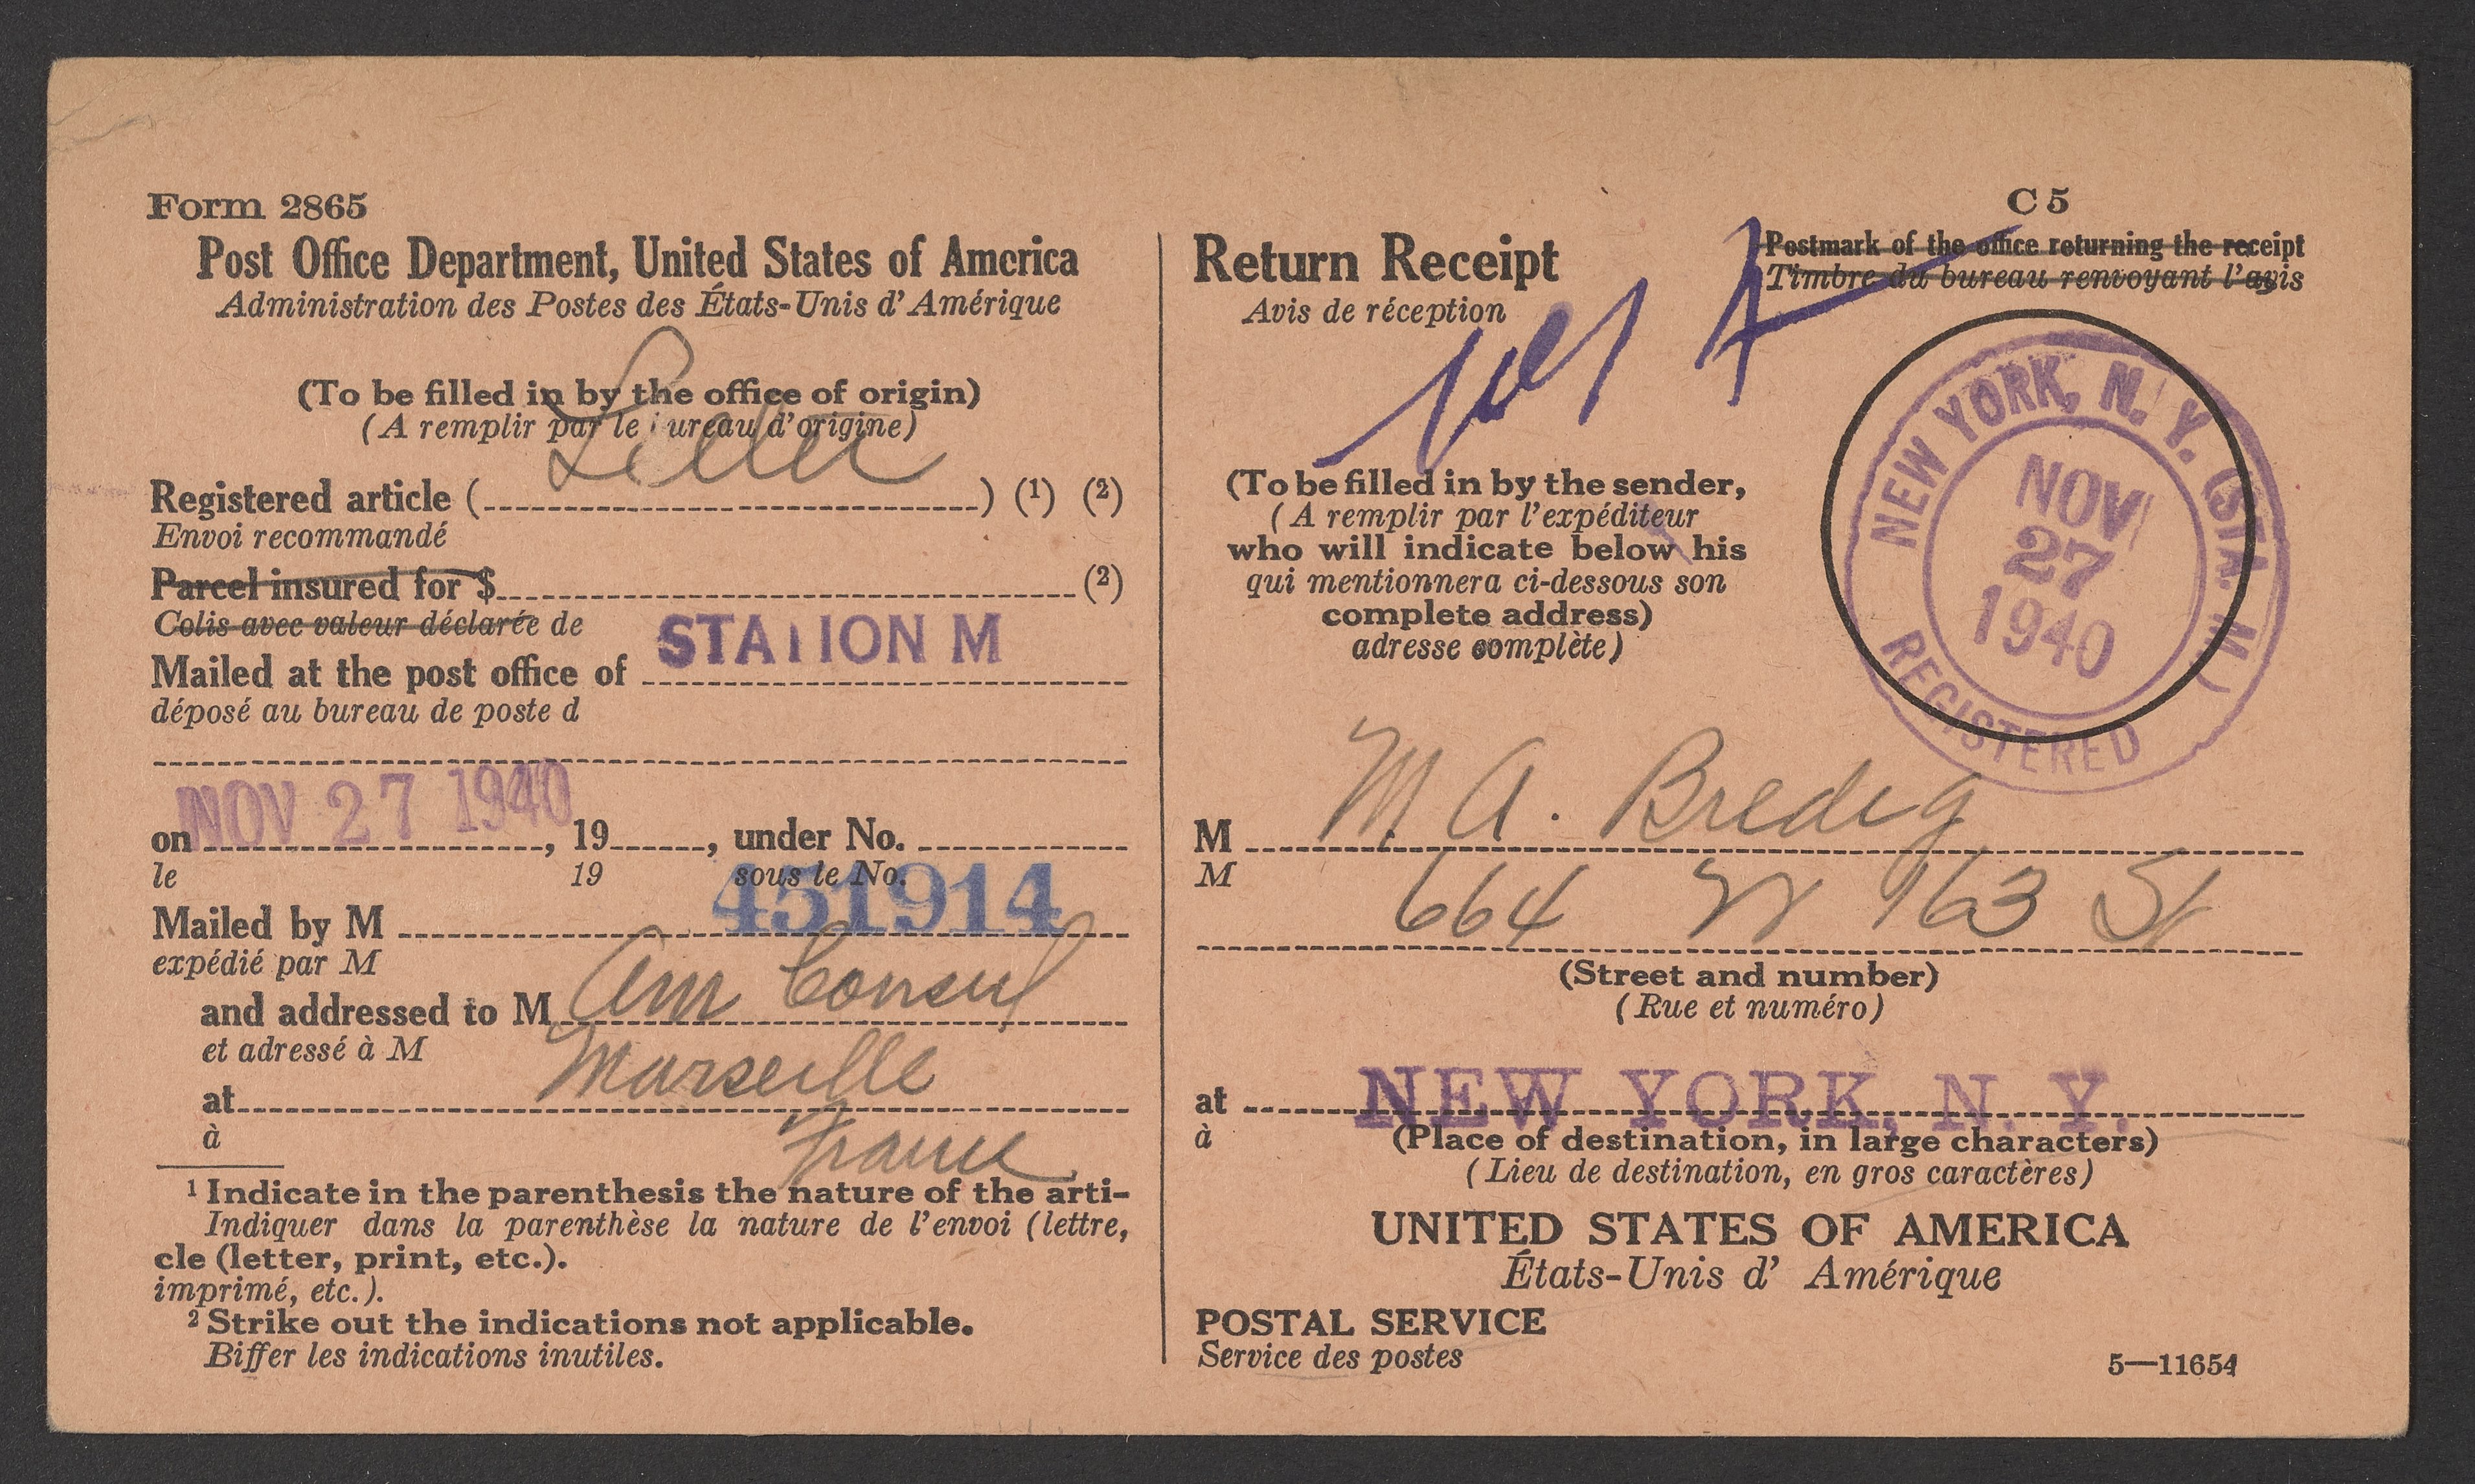 Form 2865
Post Office Department, United States of America
Administration des Postes des États-Unis d'Amérique
(To be filled in by the office of origin)
(A remplir par le ureau d'origine)
Letter
Registered article ( ) (1) (2)
Envoi recommandé
Parcel insured for $ (2)
Colis avec valeur déclarée de
STATION M
Mailed at the post office of
déposé au bureau de poste d
NOV 27 1940
on , 19 , under No.
le 19 sous le No.
451914
Mailed by M
expédié par M
and addressed to M Am Consul
et adressé à M
Marseille
at
à
France
1 Indicate in the parenthesis the nature of the arti-
Indiquer dans la parenthèse la nature de l'envoi (lettre,
cle (letter, print, etc.).
imprimé, etc.).
2 Strike out the indications not applicable.
Biffer les indications inutiles.
C 5
Return Receipt
Avis de réception
Postmark of the office returning the receipt
Timbre du bureau renvoyant l'avis
(To be filled in by the sender,
(A remplir par l'expéditeur
who will indicate below his
qui mentionnera ci-dessous son
complete address)
adresse complète)
NEW YORK, N. Y. (STA. M)
NOV
27
1940
REGISTERED
M M A. Bredig
M
664 W 163 St
(Street and number)
(Rue et numéro)
at NEW YORK, N. Y.
à
(Place of destination, in large characters)
(Lieu de destination, en gros caractères)
UNITED STATES OF AMERICA
États-Unis d' Amérique
POSTAL SERVICE
Service des postes
5—11654